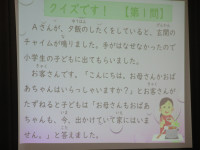 クイズです! 【第1問】
Aさんが、夕飯のしたくをしていると、玄関の
チャイムが鳴りました。手がはなせなかったので
小学生の子どもに出てもらいました。
お客さんです。「こんにちは。お母さんかおば
あちゃんはいらっしゃいますか?」お客さん
がたずねると子どもは「お母さんもおばあ
ちゃんも、今、出かけていて家にはいま
せん。」と答えました。